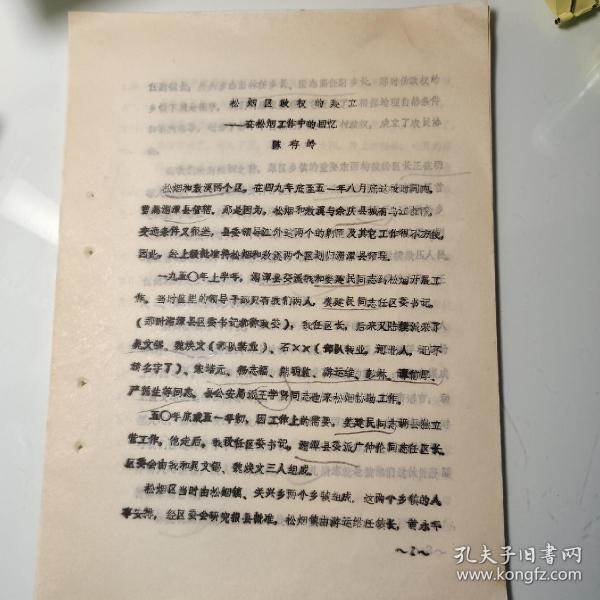 松烟区政权的建立
——在松烟工作中的回忆
陈存岭
松烟和敖溪两个区，在四九年底至五一年八月底这段时间内，
曾属湄潭县管辖。那是因为，松烟和敖溪与余庆县城有乌江相隔，
交通条件又很差，县委领导江外这两个的剿匪及其它工作很不方便，
因此，经上级批准将松烟和敖溪两个区划归湄潭县领导。
一九五〇年上半年，湄潭县委派我和娄延民同志到松烟开展工
作。当时区里的领导干部只有我们两人，娄延民同志任区委书记，
（那时湄潭县区委书记都称政委），我任区长，后来又陆续派来了
吴文银、魏焕文（部队转业）、石××（部队转业，河北人，记不
清名字了）、朱培元、杨志福、熊明监、游运维、彭彬、
严苑生等同志。县公安局派王学贤同志也来松烟协助工作。
五〇年底或五一年初，因工作上的需要，娄延民同志调县独立
营工作，他走后，我改任区委书记，湄潭县委派广仲伦同志任区长，
区委会由我和吴文银、魏焕文三人组成。
松烟区当时由松烟镇、关兴乡两个乡镇组成，这两个乡镇的人
事安排，经区委会研究报县批准，松烟镇由游运维任镇长，黄永平
～1～
孔夫子旧书网
www.kongfz.com